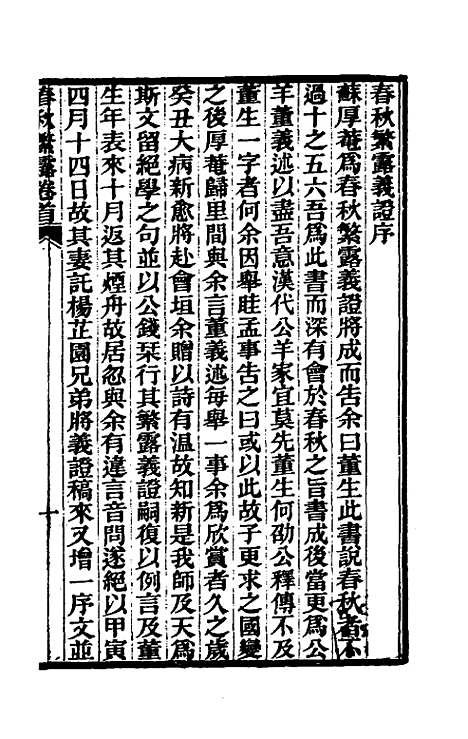 春秋繁露義證序
蘇厚菴為春秋繁露義證將成而告余曰董生此書說春秋者不
過十之五六吾為此書而深有會於春秋之旨書成後當更為公
羊董義述以盡吾意漢代公羊家宜莫先董生何劭公釋傳不及
董生一字者何余因舉眭孟事告之曰或以此故子更求之國變
之後厚菴歸里間與余言董義述每舉一事余為欣賞者久之歲
癸丑大病新愈將赴會垣余贈以詩有溫故知新是我師及天為
斯文留絕學之句並以公錢栞行其繁露義證嗣復以例言及董
生年表來十月返其煙舟故居忽與余有違言音問遂絕以甲寅
四月十四日故其妻託楊芷園兄弟將義證稿來又增一序文並
春秋繁露卷首
十